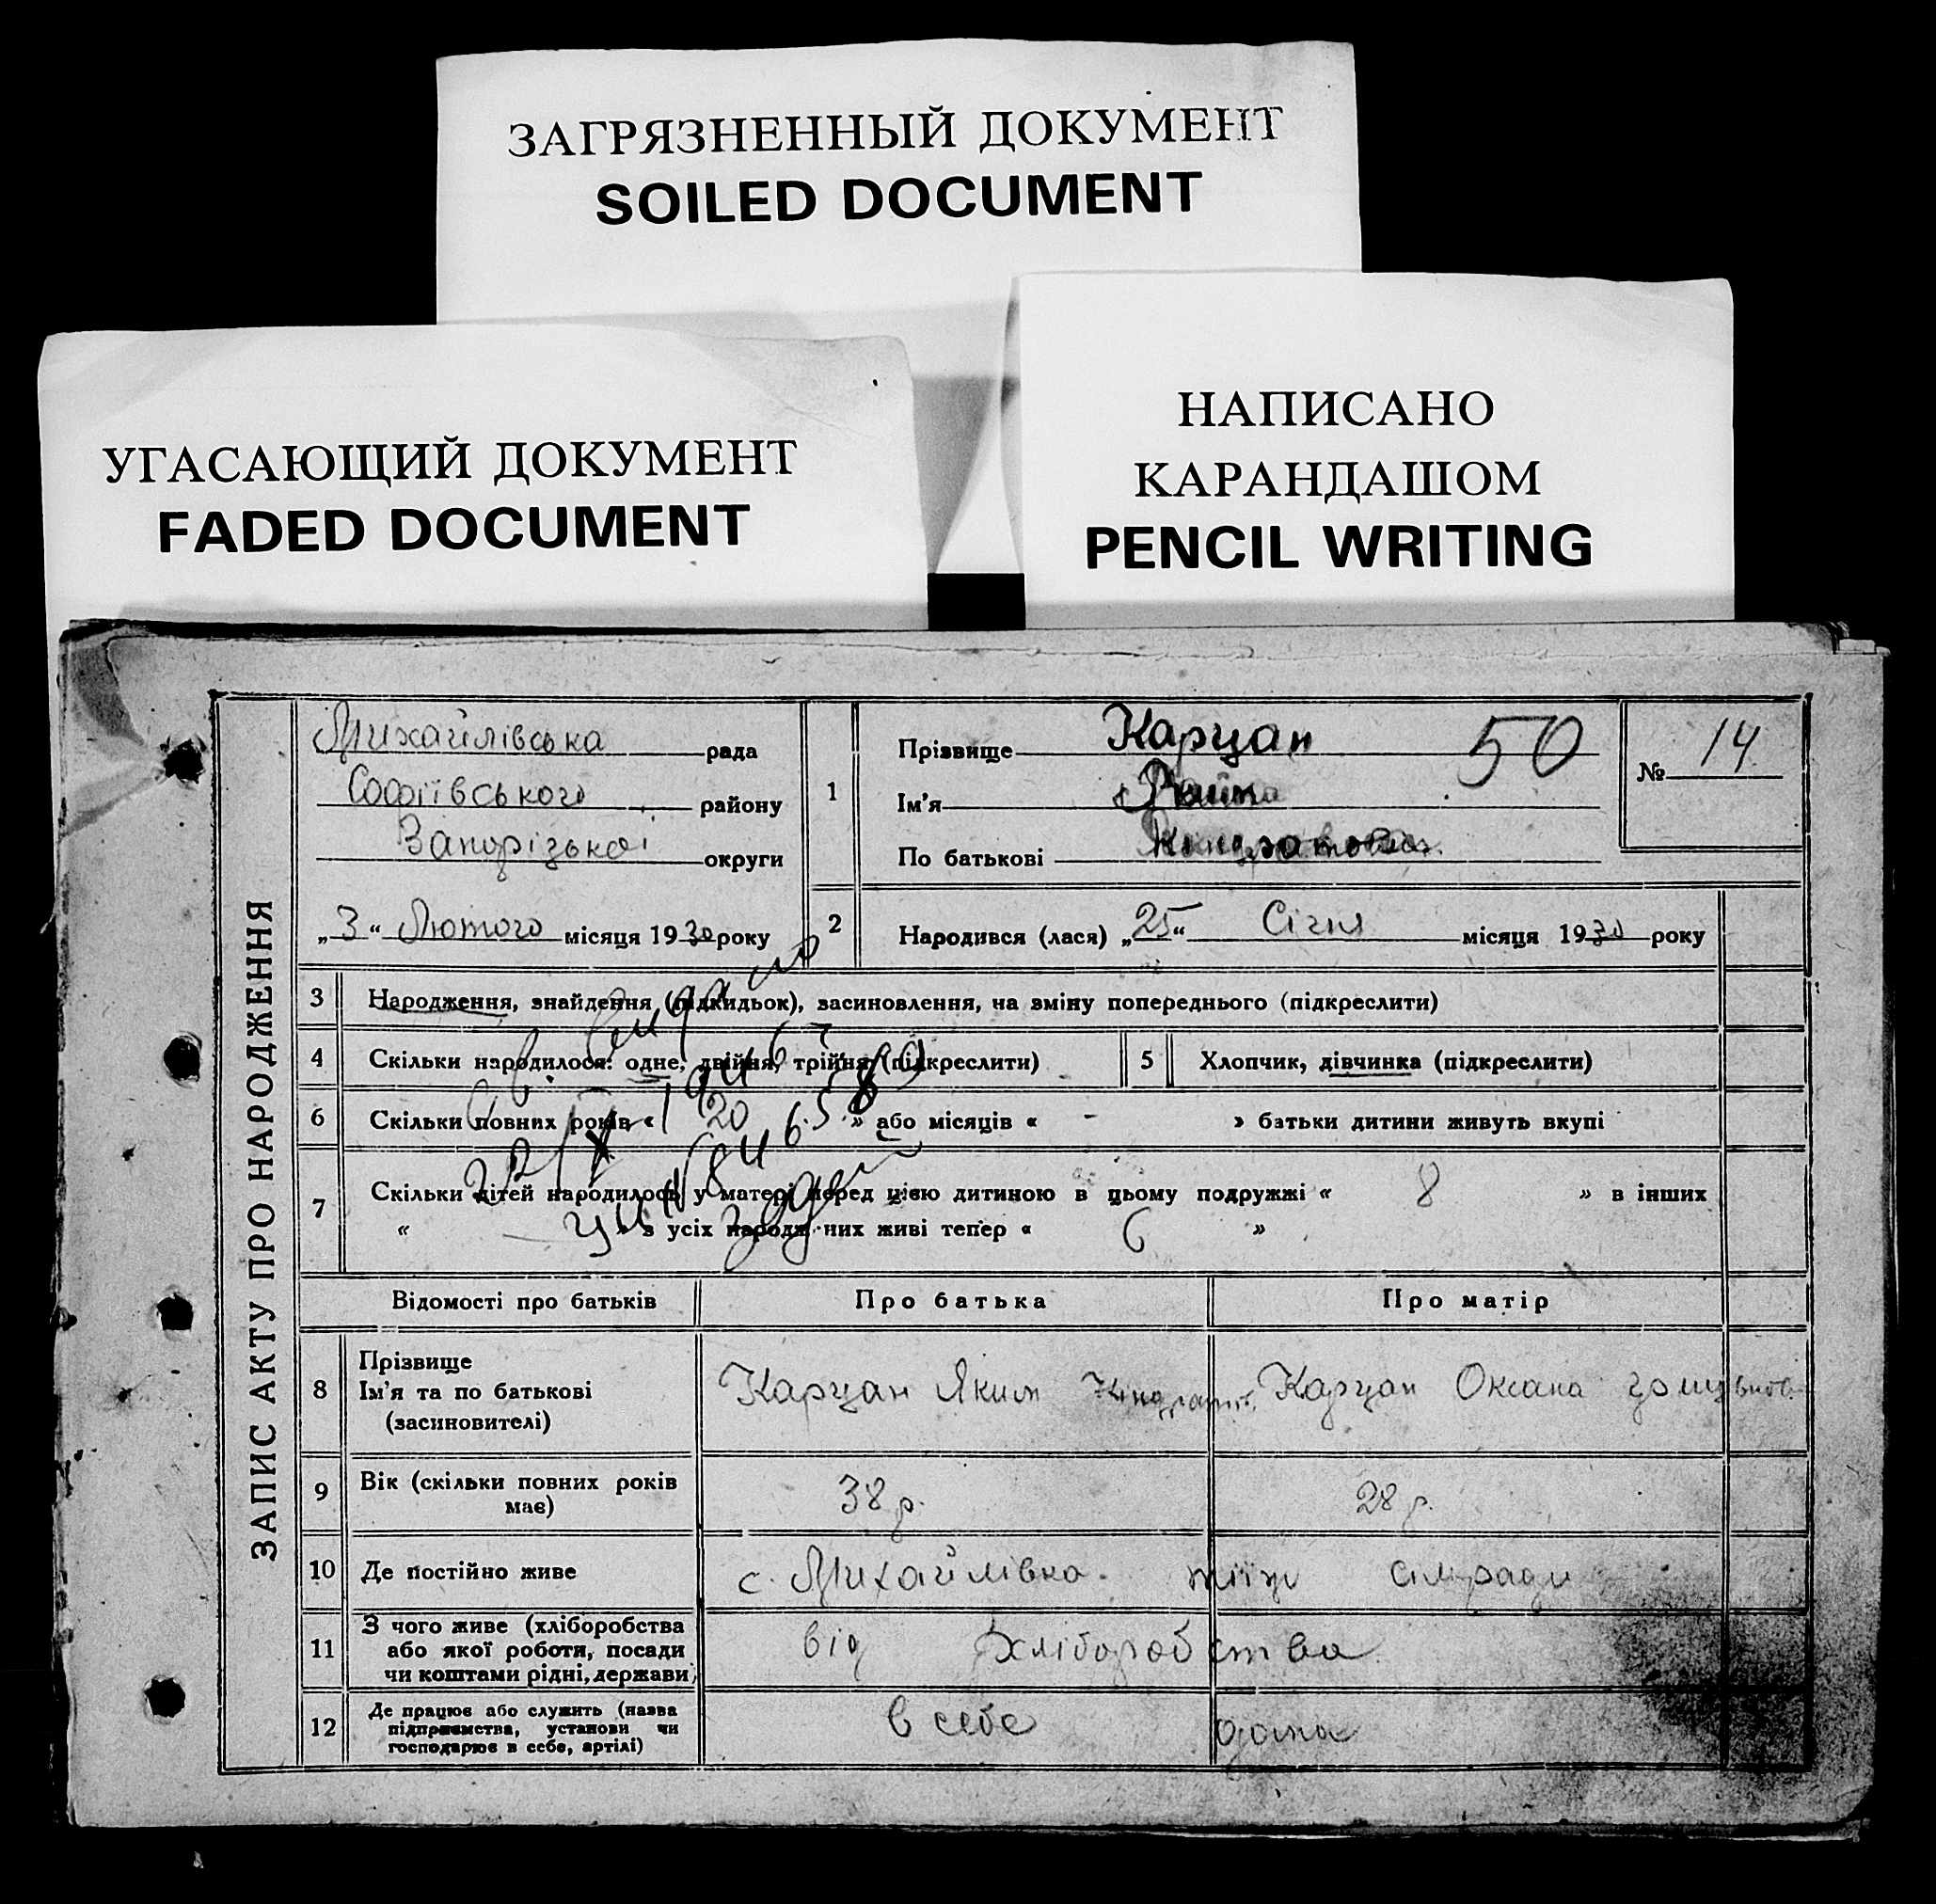 ЗАГРЯЗНЕННЫЙ ДОКУМЕНТ
SOILED DOCUMENT
УГАСАЮЩИЙ ДОКУМЕНТ
FADED DOCUMENT
НАПИСАНО
КАРАНДАШОМ
PENCIL WRITING
ЗАПИС АКТУ ПРО НАРОДЖЕННЯ
Михайлівська рада
Софіївського району
Запорізької округи
„3“ Лютого місяця 1930 року
1
Прізвище Карцан 50
Ім'я
По батькові
№ 14
2 Народився (лася) „25“ Січня місяця 1930 року
3 Народження, знайдення (підкидьок), засиновлення, на зміну попереднього (підкреслити)
4 Скільки народилося: одне, двійня, трійня (підкреслити)
5 Хлопчик, дівчинка (підкреслити)
6 Скільки повних років « 20 » або місяців « - » батьки дитини живуть вкупі
7 Скільки дітей народилось у матері перед цією дитиною в цьому подружжі « 8 » в інших
« — » з усіх народжених живі тепер « 6 »
Відомості про батьків Про батька Про матір
8 Прізвище
Ім'я та по батькові
(засиновителі)
Карцан Яким
Карцан Оксана
9 Вік (скільки повних років
має)
38 р. 28 р.
10 Де постійно живе с. Михайлівка. тіїї сілради
11 З чого живе (хліборобства
або якої роботи, посади
чи коштами рідні, держави)
від хліборобства
12 Де працює або служить (назва
підприємства, установи чи
господарює в себе, артілі)
в себе дома